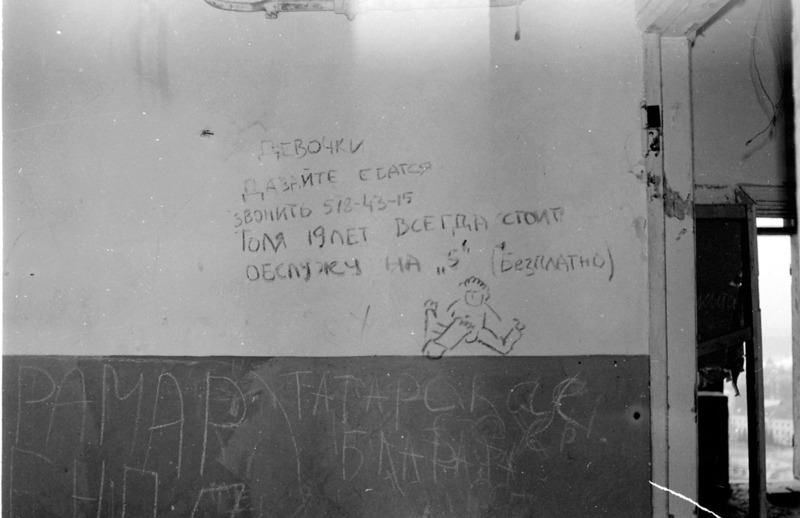 ДЕВОЧКИ
ДАВАЙТЕ ЕБАТСЯ
ЗВОНИТЬ 518-43-15
ТОЛЯ 19 ЛЕТ ВСЕГДА СТОИТ
ОБСЛУЖУ НА „5“ (БЕЗПЛАТНО)
РАМАР ТАТАРСКАЯ